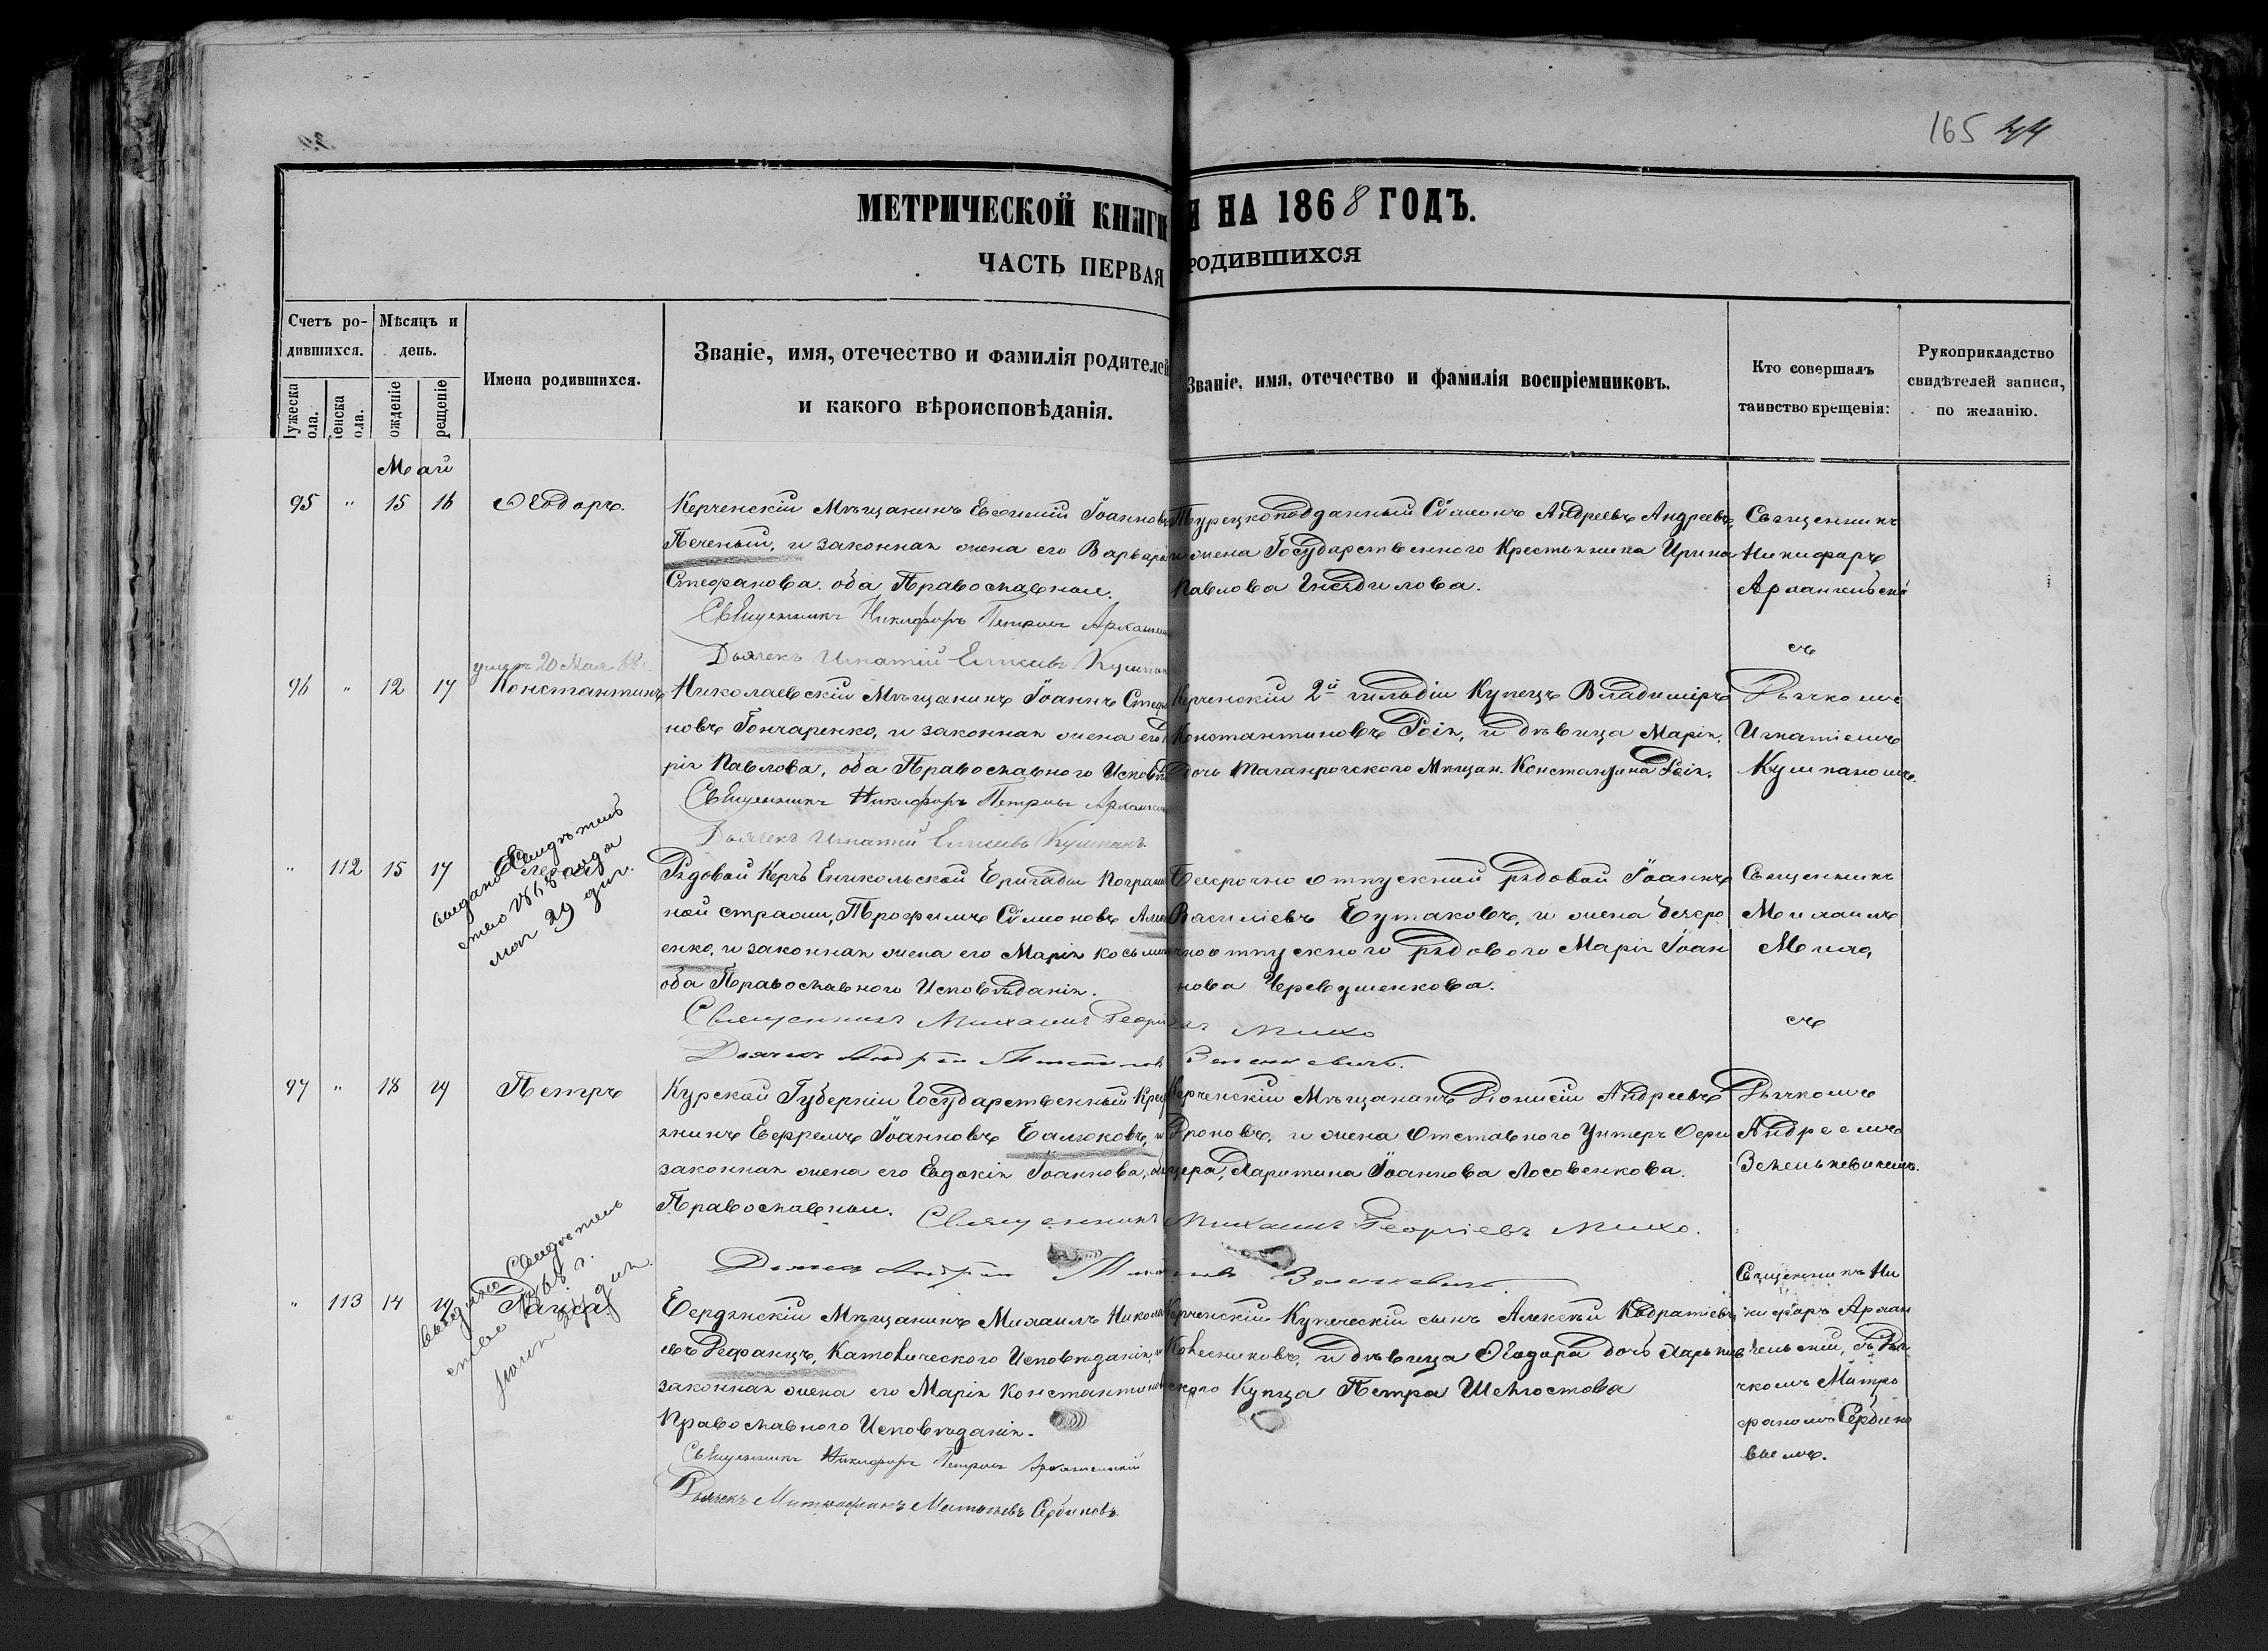 165 44
МЕТРИЧЕСКОЙ КНИГИ НА 1868 ГОДЪ.
ЧАСТЬ ПЕРВАЯ РОДИВШИХСЯ
Счетъ родившихся.
Мѣсяцъ и день.
Имена родившихся.
Званіе, имя, отечество и фамилія родителей
и какого вѣроисповѣданія.
Званіе, имя, отечество и фамилія воспріемниковъ.
Кто совершалъ
таинство крещенія:
Рукоприкладство
свидѣтелей записи,
по желанію.
Май
95 " 15 16 Ѳеодоръ.
Керченскій Мѣщанинъ Евѳимій Іоанновъ
Печеный, и законная жена его Варвара
Стефанова. оба Православные.
Священникъ Никифоръ Петровъ
Дьячекъ Игнатій
Турецкоподданный Сѵмеонъ Андреевъ Андреевъ,
и жена Государственного Крестьянина Ирина
Павлова Гнездилова.
Священникъ
Никифоръ
Архангельскій
съ
умеръ 20 Мая 68 г.
96 " 12 17 Константинъ
Николаевскій Мѣщанинъ Іоаннъ Стефа
новъ Гончаренко, и законная жена его
рія Павлова, оба Православного Исповѣ
Священникъ Никифоръ Петровъ
Дьячекъ Игнатій
Керченскій 2й гильдіи Купецъ Владиміръ
Константиновъ Роія, и дѣвица Марія,
дочь Таганрогского Мѣщан. Константина Роія.
Дьячкомъ
Игнатіемъ
Кушпаномъ.
" 112 15 17
Выдано Свидѣтель
ство 1868 года
мая 29 дня.
Рядовой Керчь Еникольской Бригады Погранич
ной стражи, Трофимъ Сѵмоновъ
енко, и законная жена его Марія Косьмина
оба Православного Исповѣданія.
Священникъ Михаилъ Георгіевъ Михо
Дьячекъ Андрей
Безсрочно отпускной рядовой Іоаннъ
Василіевъ Бутаковъ, и жена безсро
чноотпускного рядового Марія Іоан
нова Черевушенкова.
Священникъ
Михаилъ
Михо,
съ
97 " 18 19 Петръ
Курской Губерніи Государственный Крест
янинъ Ефремъ Іоанновъ Балюковъ, и
законная жена его Евдокія Іоаннова, оба
Православные.
Священникъ Михаилъ Георгіевъ Михо.
Дьячекъ Андрей
Керченскій Мѣщанинъ Діонисій Андреевъ
Дроновъ, и жена Отставного Унтеръ Офи
цера, Харитина Іоаннова Лосовенкова.
Дьячкомъ
Андреемъ
Зенькевичемъ.
" 113 14 19 Раиса
Выдано Свидѣтель
ство 1868 г.
дня.
Бердянскій Мѣщанинъ Михаилъ Никола
евъ Рефанцъ, Католического Исповѣданія, и
законная жена его Марія Константинова
Православного Исповѣданія.
Священникъ Никифоръ Петровъ Архангельскій
Дьячекъ Митрофанъ Матѳеевъ Сербиновъ.
Керченскій Купеческій сынъ Алексѣй Кодратіевъ
Колесниковъ, и дѣвица Ѳеодора дочь Харьков
ского Купца Петра Шелгостова
Священникъ Ни
кифоръ Архан
гельскій, съ Дья
чкомъ Митро
фаномъ Сербино
вымъ.